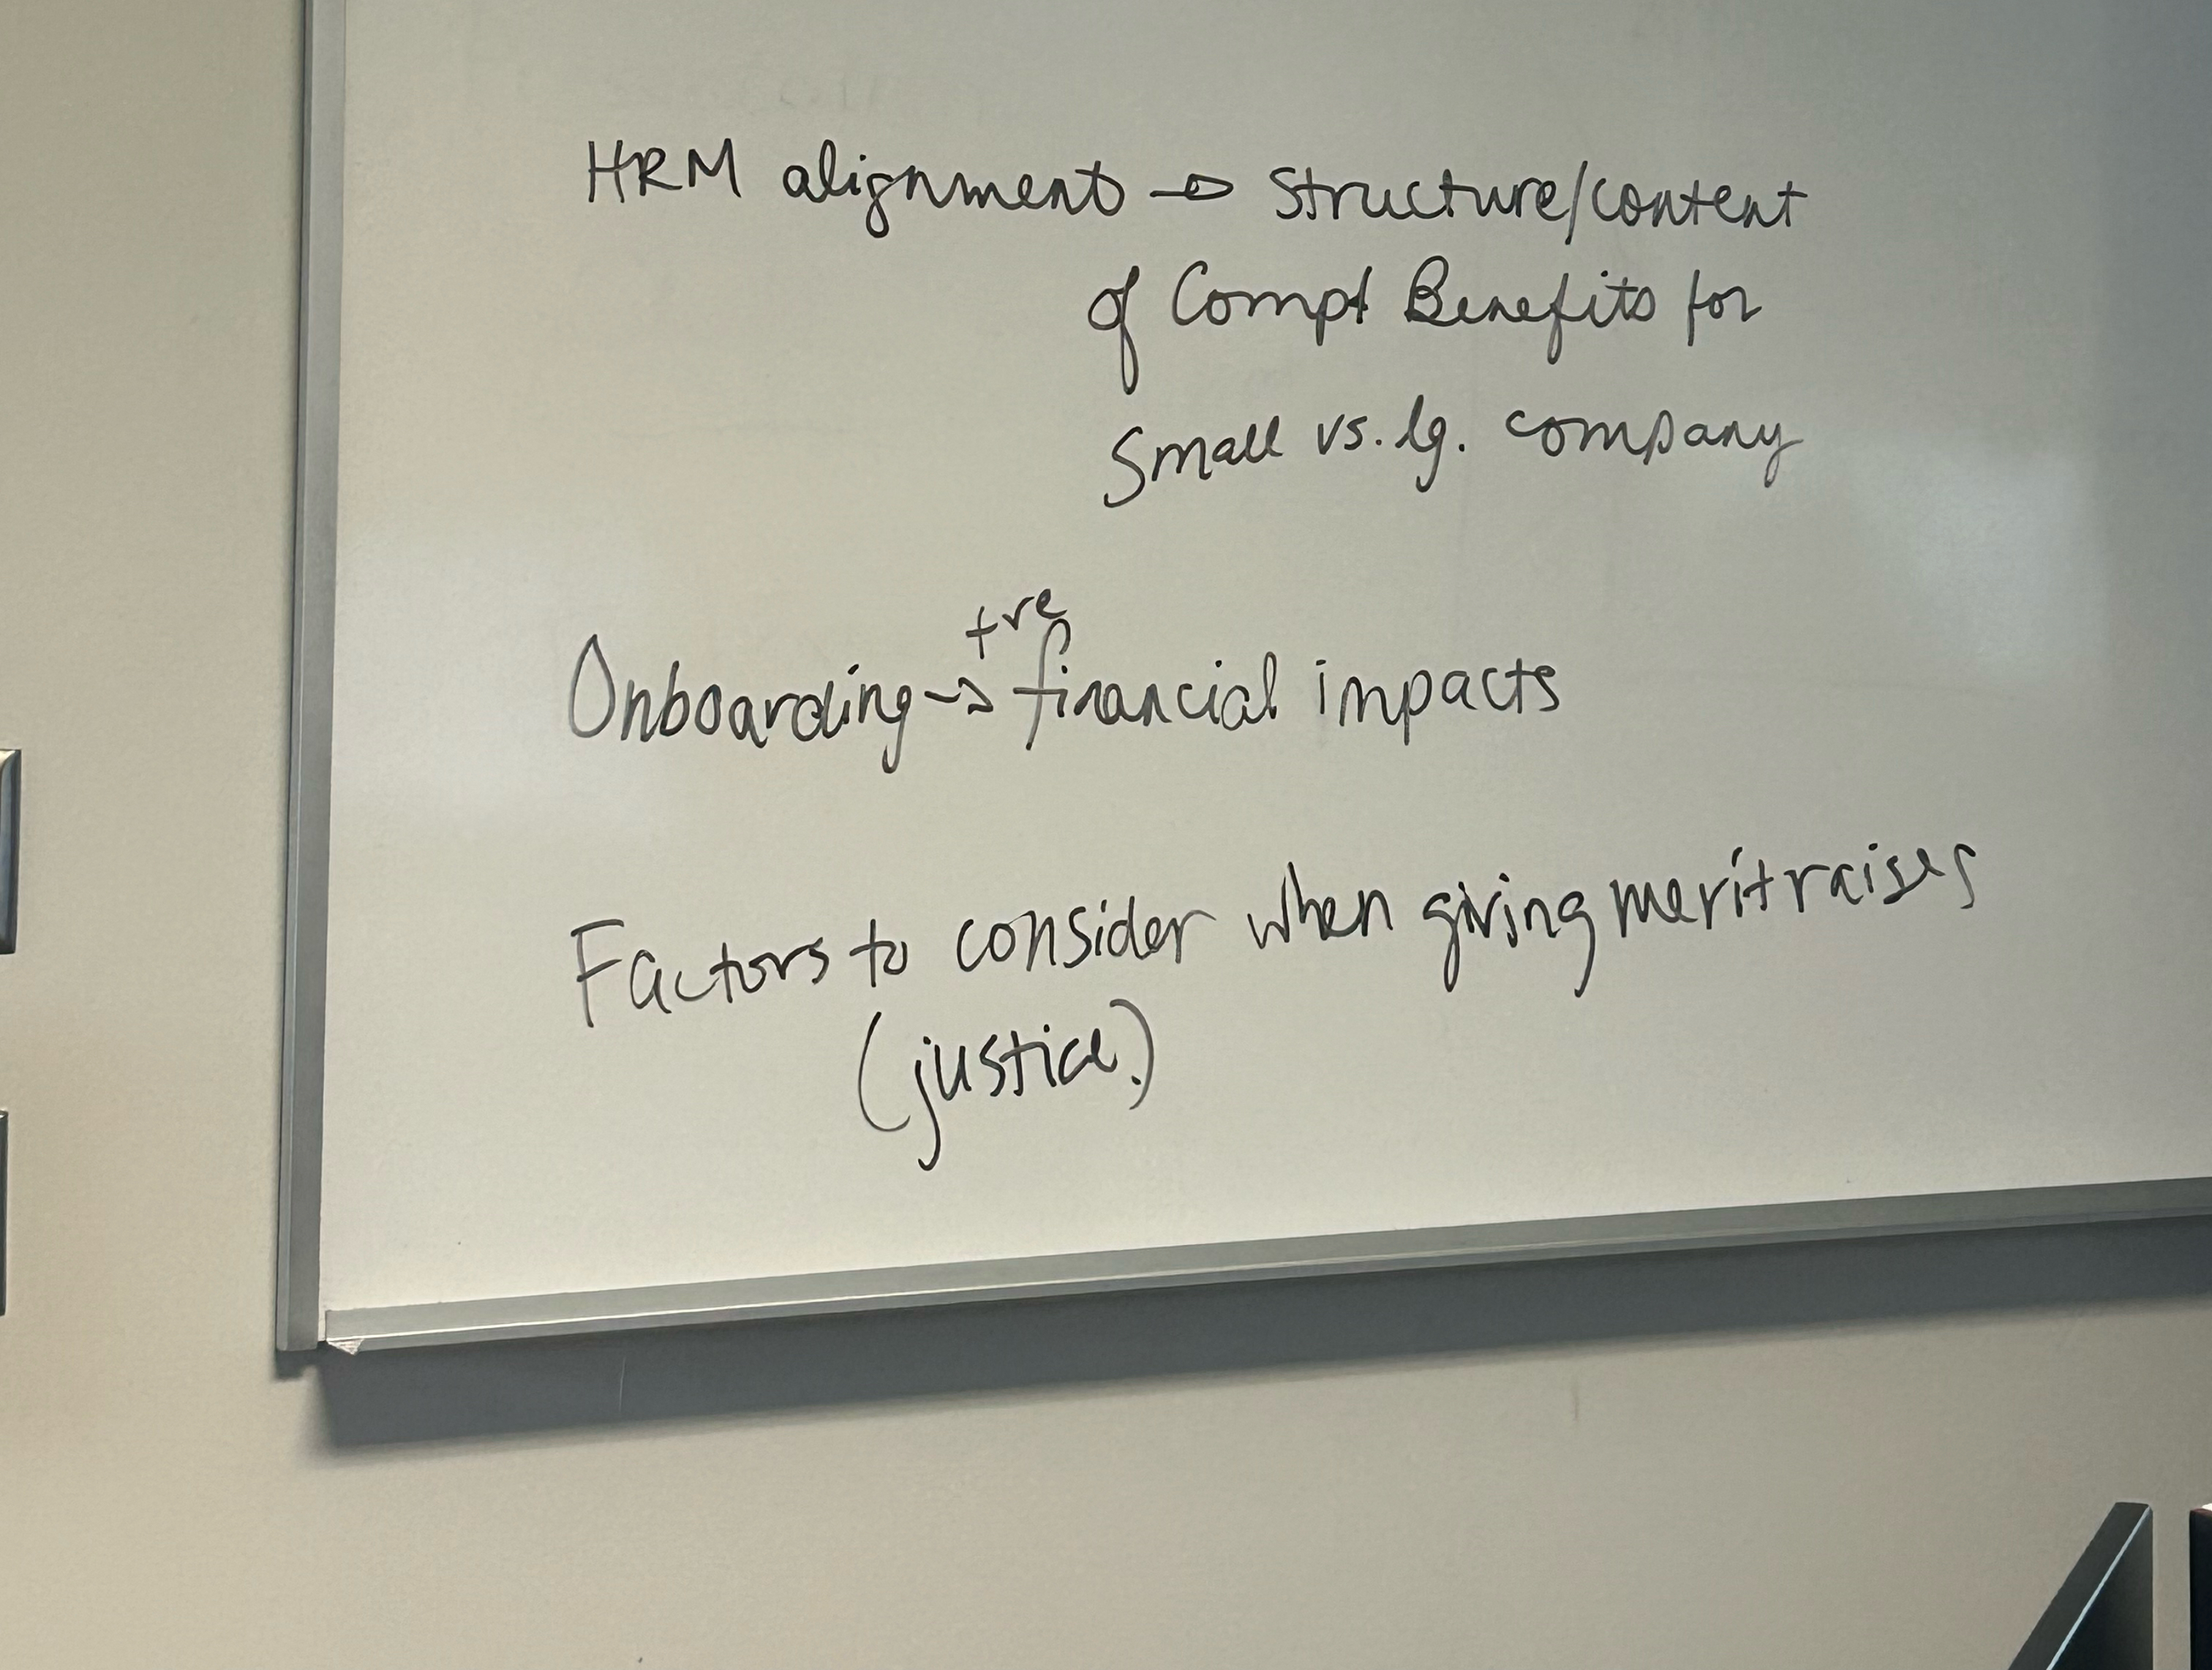 HRM alignment → Structure/content
of Comp & Benefits for
Small vs. lg. company
+ve
Onboarding → financial impacts
Factors to consider when giving merit raises
(justice.)